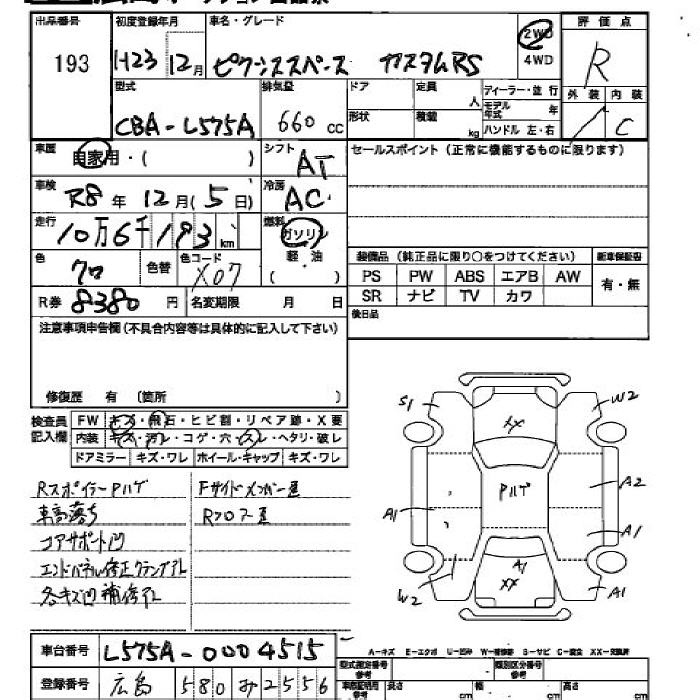 出品番号 193
初度登録年月 H23 12月
車名・グレード ピクシススペース カスタムRS
2WD
4WD
評価点 R
外装 内装 C
型式 CBA-L575A
排気量 660 cc
ドア
形状
定員 人
積載 kg
ディーラー・並行
モデル年式 年
ハンドル 左・右
車歴 自家用・( )
シフト AT
セールスポイント(正常に機能するものに限ります)
車検 R8年 12月(5日)
冷房 AC
走行 10万6千193 km
燃料 ガソリン
軽油
( )
色 クロ 色替
色コード X07
装備品(純正品に限り○をつけてください)
新車保証書
PS PW ABS エアB AW
有・無
SR ナビ TV カワ
R券 8380 円 名変期限 月 日
後日品
注意事項申告欄(不具合内容等は具体的に記入して下さい)
修復歴 有 〔箇所 〕
検査員記入欄
FW キズ・飛石・ヒビ割・リペア跡・X要
内装 キズ・汚レ・コゲ・穴・スレ・ヘタリ・破レ
ドアミラー キズ・ワレ ホイール・キャップ キズ・ワレ
Rスポイラー Pハゲ
車高落ち
コアサポート凹
エンドパネル修正クランプアト
各キズ凹補修アト
Fサイドメンバー歪
Rフロアー歪
S1
W2
XX
A1
Pハゲ
A2
A1
A1
XX
W2
A1
車台番号 L575A-0004515
登録番号 広島 580 み 2556
A-キズ E-エクボ U-凹み W-補修跡 S-サビ C-腐食 XX-交換済
型式指定番号 参考
類別区分番号 参考
車庫証明用 参考 長さ cm 幅 cm 高さ cm